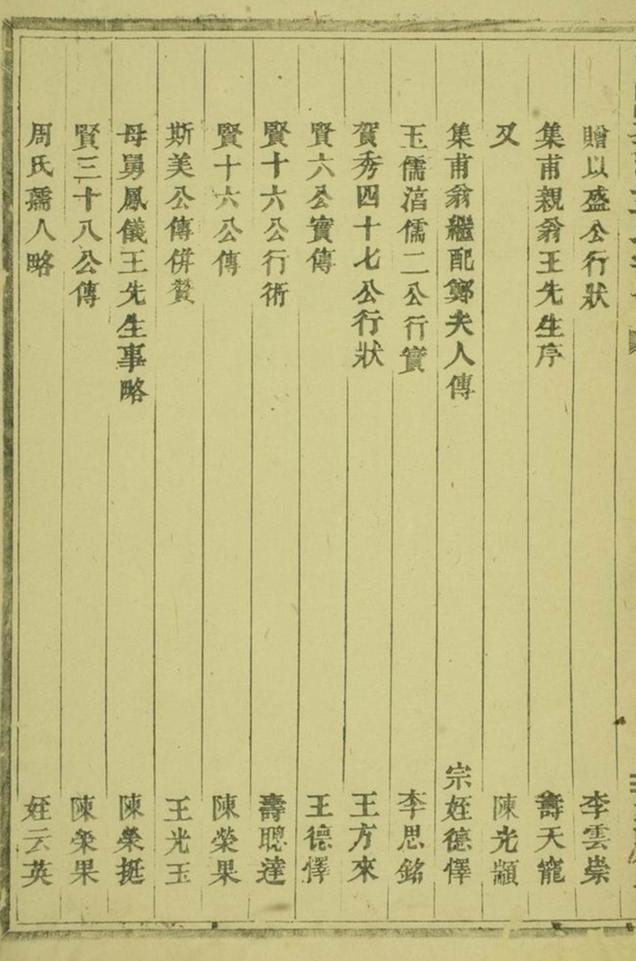 贈以盛公行狀 李雲崇
集甫親翁王先生序 壽天寵
又 陳光顓
集甫翁繼配鄭夫人傳 宗姪德懌
玉儒湻儒二公行實 李思銘
賀秀四十七公行狀 王方來
賢六公實傳 王德懌
賢十六公行術 壽聰達
賢十六公傳 陳榮果
斯美公傳併贊 王光玉
母舅鳳儀王先生事略 陳榮挺
賢三十八公傳 陳榮果
周氏孺人略 姪云英